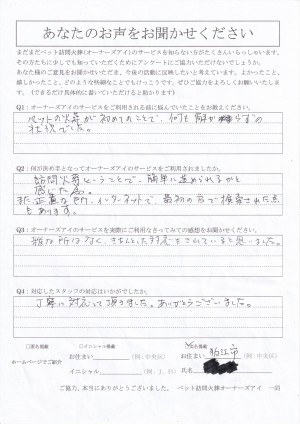 あなたのお声をお聞かせください
まだまだペット訪問火葬(オーナーズアイ)のサービスを知らない方がたくさんいらっしゃいます。
その方たちに少しでも知っていただくためにアンケートにご協力いただけないでしょうか。
あなた様のご意見をお聞かせいただき、今後の活動に反映したいと考えています。よかったこと、
嬉しかったこと、どのような些細なことでもけっこうです。ぜひご協力をよろしくお願いいたしま
す。（できるだけ具体的に書いていただけると助かります）
Q1：オーナーズアイのサービスをご利用される前に悩んでいたことをお教えください。
ペットの火葬が初めてのことで、何も解らずの
状況でした。
Q2：何が決め手となってオーナーズアイのサービスをご利用されましたか。
訪問火葬ということで、簡単に進められるかと
感じた為。
又、正直な所、インターネットで、最初の方で検索された点
もあります。
Q3：オーナーズアイのサービスを実際にご利用なさってみての感想をお聞かせください。
雑な所はなく、きちんとした対応をされていると思いました。
Q4：対応したスタッフの対応はいかがでしたか。
丁寧に対応して頂きました。ありがとうございました。
□匿名掲載 □イニシャル掲載 名掲載
お住まい （例：中央区） お住まい 狛江市 （例：中央区）
ホームページでご紹介
イニシャル （例：J. H） 氏名
ご協力、本当にありがとうございました。 ペット訪問火葬オーナーズアイ 一同